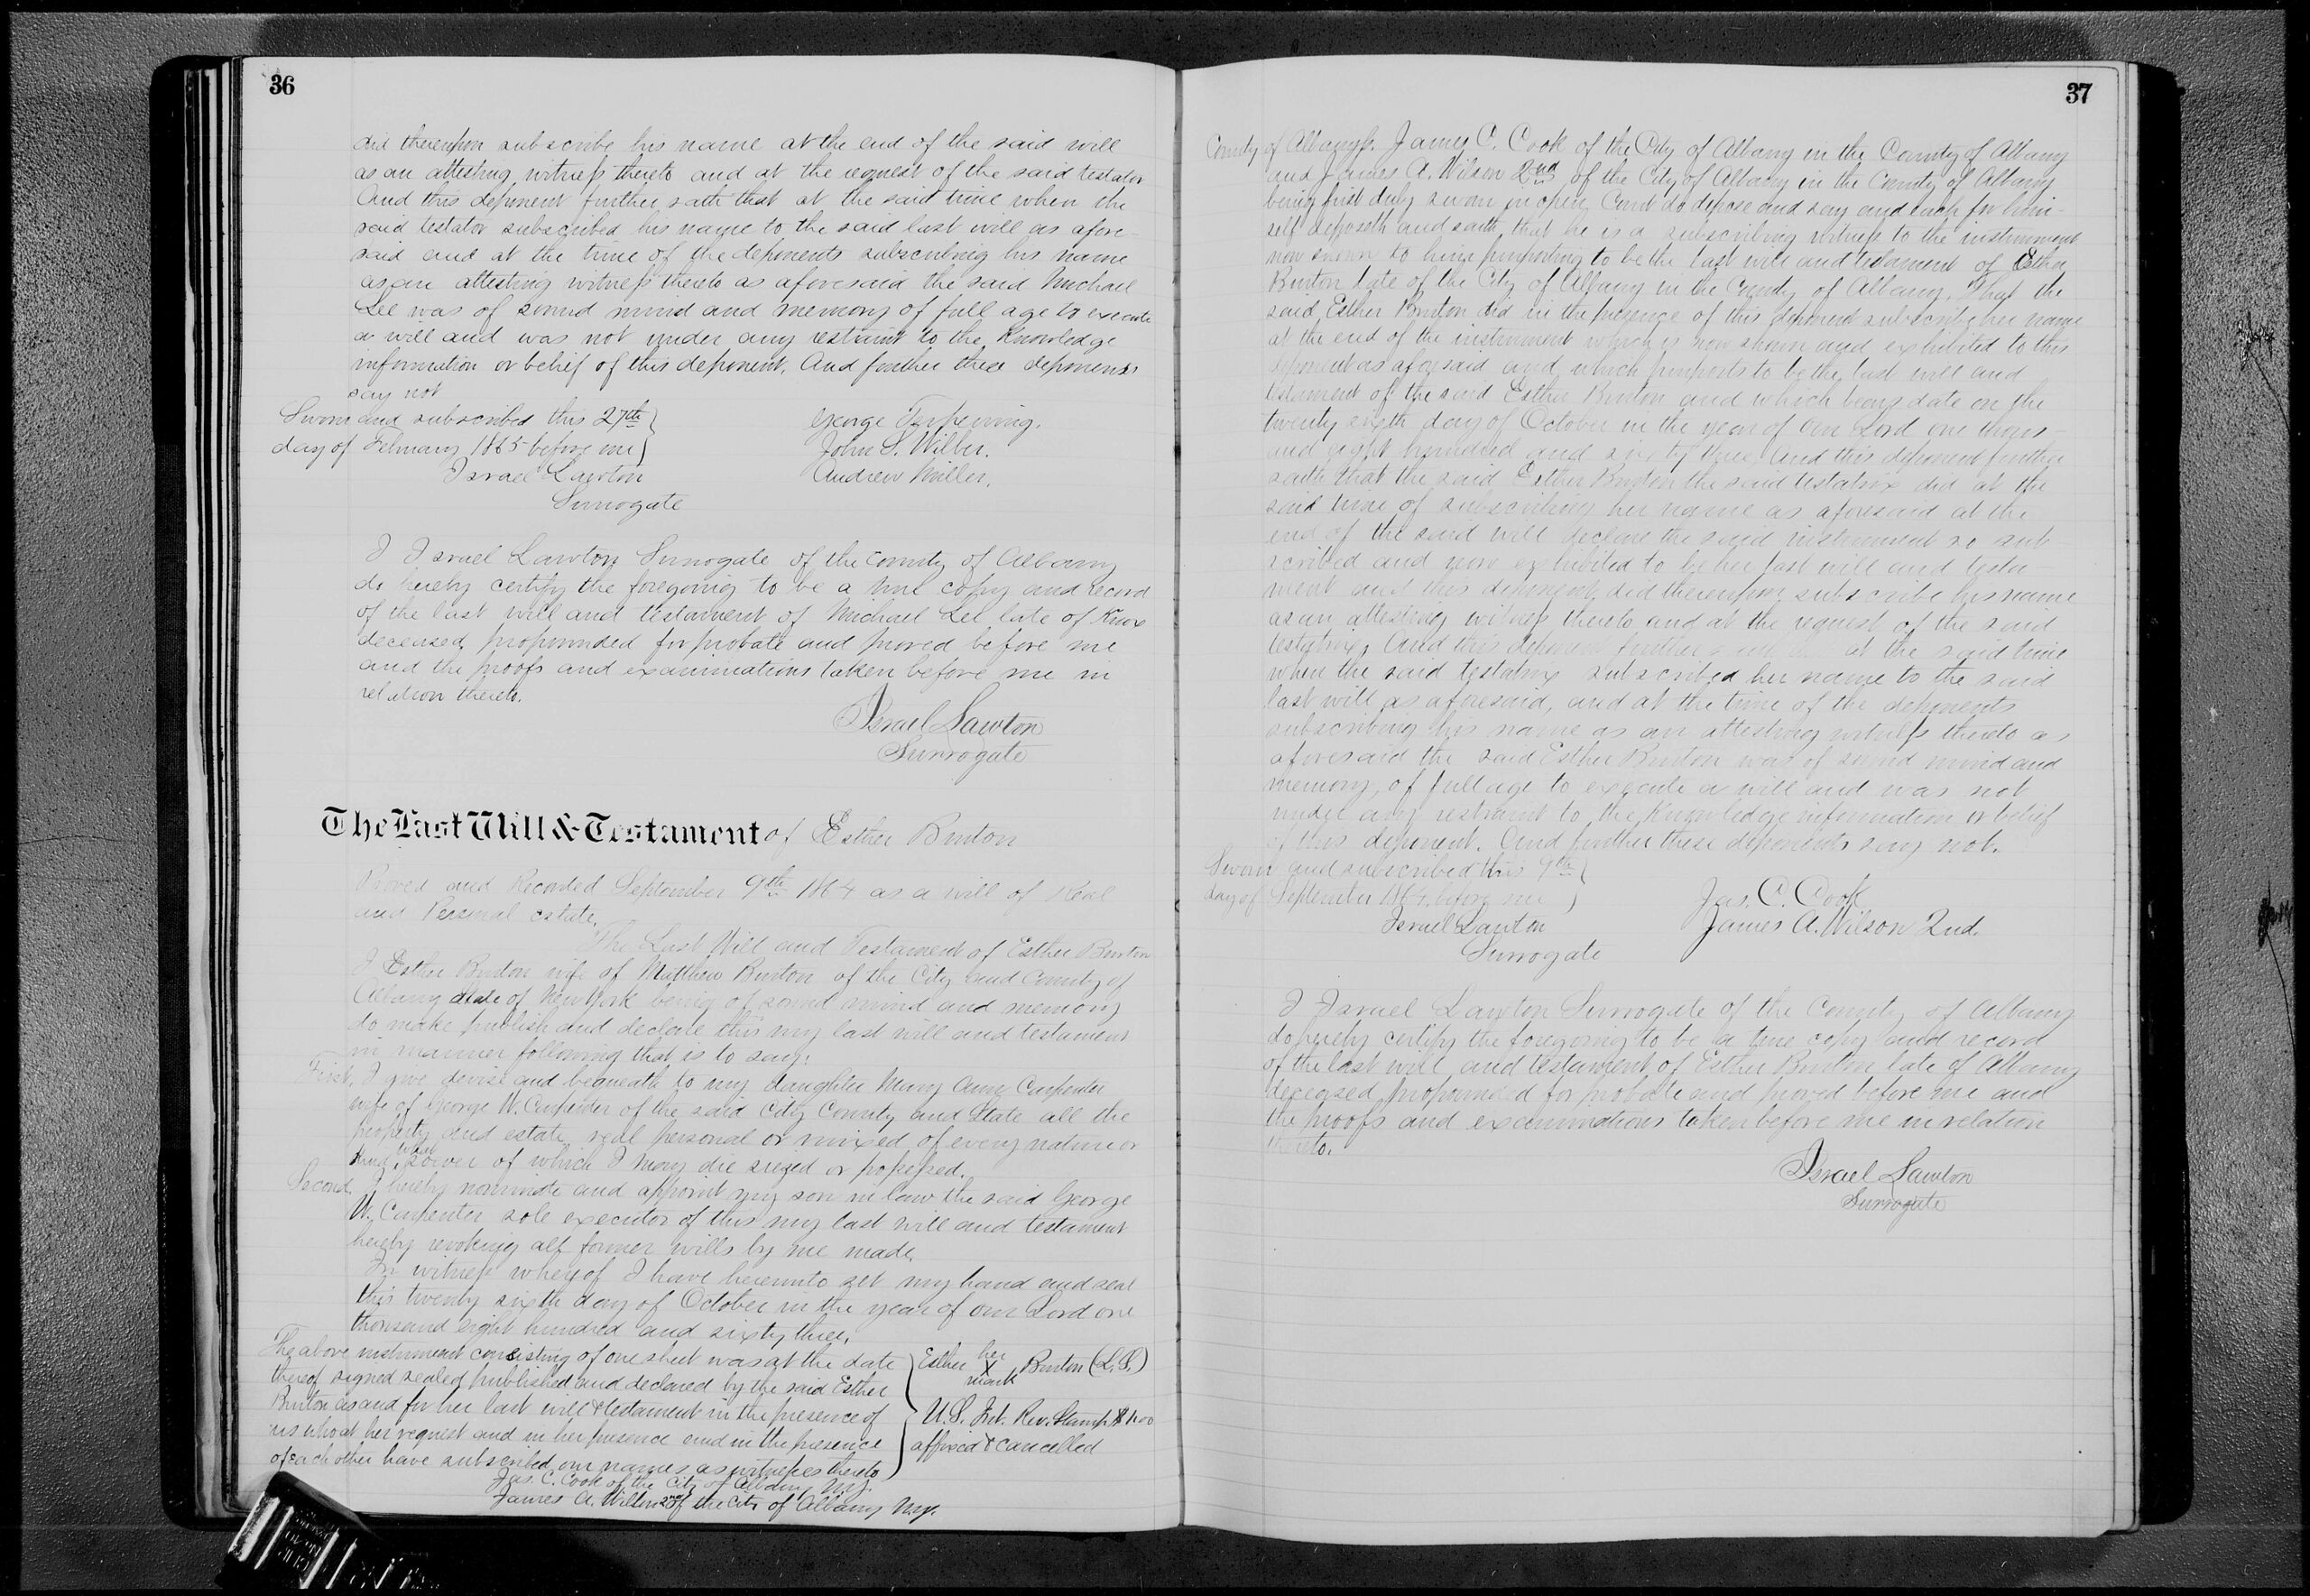 36
did thereupon subscribe his name at the end of the said will
as an attesting witness thereto and at the request of the said testator
And this deponent further saith that at the said time when the
said testator subscribed his name to the said last will as afore-
said and at the time of the deponents subscribing his name
as an attesting witness thereto as aforesaid the said Michael
Lee was of sound mind and memory of full age to execute
a will and was not under any restraint to the Knowledge
information or belief of this deponent. And further these deponents
say not
Sworn and subscribed this 27th
day of February 1865 before me
Israel Lawton
Surrogate
George Terpening.
John S. Wilber.
Andrew Miller.
I Israel Lawton Surrogate of the County of Albany
do hereby certify the foregoing to be a true copy and record
of the last will and testament of Michael Lee late of Knox
deceased, propounded for probate and proved before me
and the proofs and examinations taken before me in
relation thereto.
Israel Lawton
Surrogate
The Last Will & Testament of Esther Burton
Proved and Recorded September 9th 1864 as a will of Real
and Personal estate.
The Last Will and Testament of Esther Burton
I Esther Burton wife of Matthew Burton of the City and County of
Albany State of New York being of sound mind and memory
do make publish and declare this my last will and testament
in manner following that is to say:
First, I give devise and bequeath to my daughter Mary Ann Carpenter
wife of George W. Carpenter of the said City County and State all the
property and estate, real personal or mixed of every nature or
kind whatsoever of which I may die siezed or possessed.
Second, I hereby nominate and appoint my son in law the said George
W. Carpenter sole executor of this my last will and testament
hereby revoking all former wills by me made.
In witness whereof I have hereunto set my hand and seal
this twenty sixth day of October in the year of our Lord one
thousand eight hundred and sixty three.
The above instrument consisting of one sheet was at the date
thereof signed sealed published and declared by the said Esther
Burton as and for her last will & testament in the presence of
us who at her request and in her presence and in the presence
of each other have subscribed our names as witnesses thereto
Esther her X mark Burton (L.S.)
U.S. Int. Rev. Stamp $1.00
affixed & cancelled
Jas. C. Cook of the City of Albany N.Y.
James A. Wilson 2nd of the City of Albany N.Y.
37
County of Albany ss. James C. Cook of the City of Albany in the County of Albany
and James A. Wilson 2nd of the City of Albany in the County of Albany
being first duly sworn in open Court do depose and say and each for him-
self deposeth and saith, that he is a subscribing witness to the instrument
now shown to him purporting to be the last will and testament of Esther
Burton late of the City of Albany in the County of Albany. That the
said Esther Burton did in the presence of this deponent subscribe her name
at the end of the instrument which is now shown and exhibited to this
deponent as aforesaid and which purports to be the last will and
testament of the said Esther Burton and which bears date on the
twenty sixth day of October in the year of our Lord one thous
and eight hundred and sixty three, And this deponent further
saith that the said Esther Burton the said testatrix did at the
said time of subscribing her name as aforesaid at the
end of the said will declare the said instrument so sub
scribed and now exhibited to be her last will and testa
ment and this deponent did thereupon subscribe his name
as an attesting witness thereto and at the request of the said
testatrix, And this deponent further at the said time
when the said testatrix subscribed her name to the said
last will as aforesaid, and at the time of the deponents
subscribing his name as an attesting witness thereto as
aforesaid the said Esther Burton was of sound mind and
memory, of full age to execute a will and was not
under any restraint to the Knowledge information or belief
of this deponent. And further these deponents say not.
Sworn and subscribed this 9th
day of September 1864 before me
Israel Lawton
Surrogate
Jas. C. Cook
James A. Wilson 2nd.
I Israel Lawton Surrogate of the County of Albany
do hereby certify the foregoing to be a true copy and record
of the last will and testament of Esther Burton late of Albany
deceased, propounded for probate and proved before me and
the proofs and examinations taken before me in relation
thereto.
Israel Lawton
Surrogate